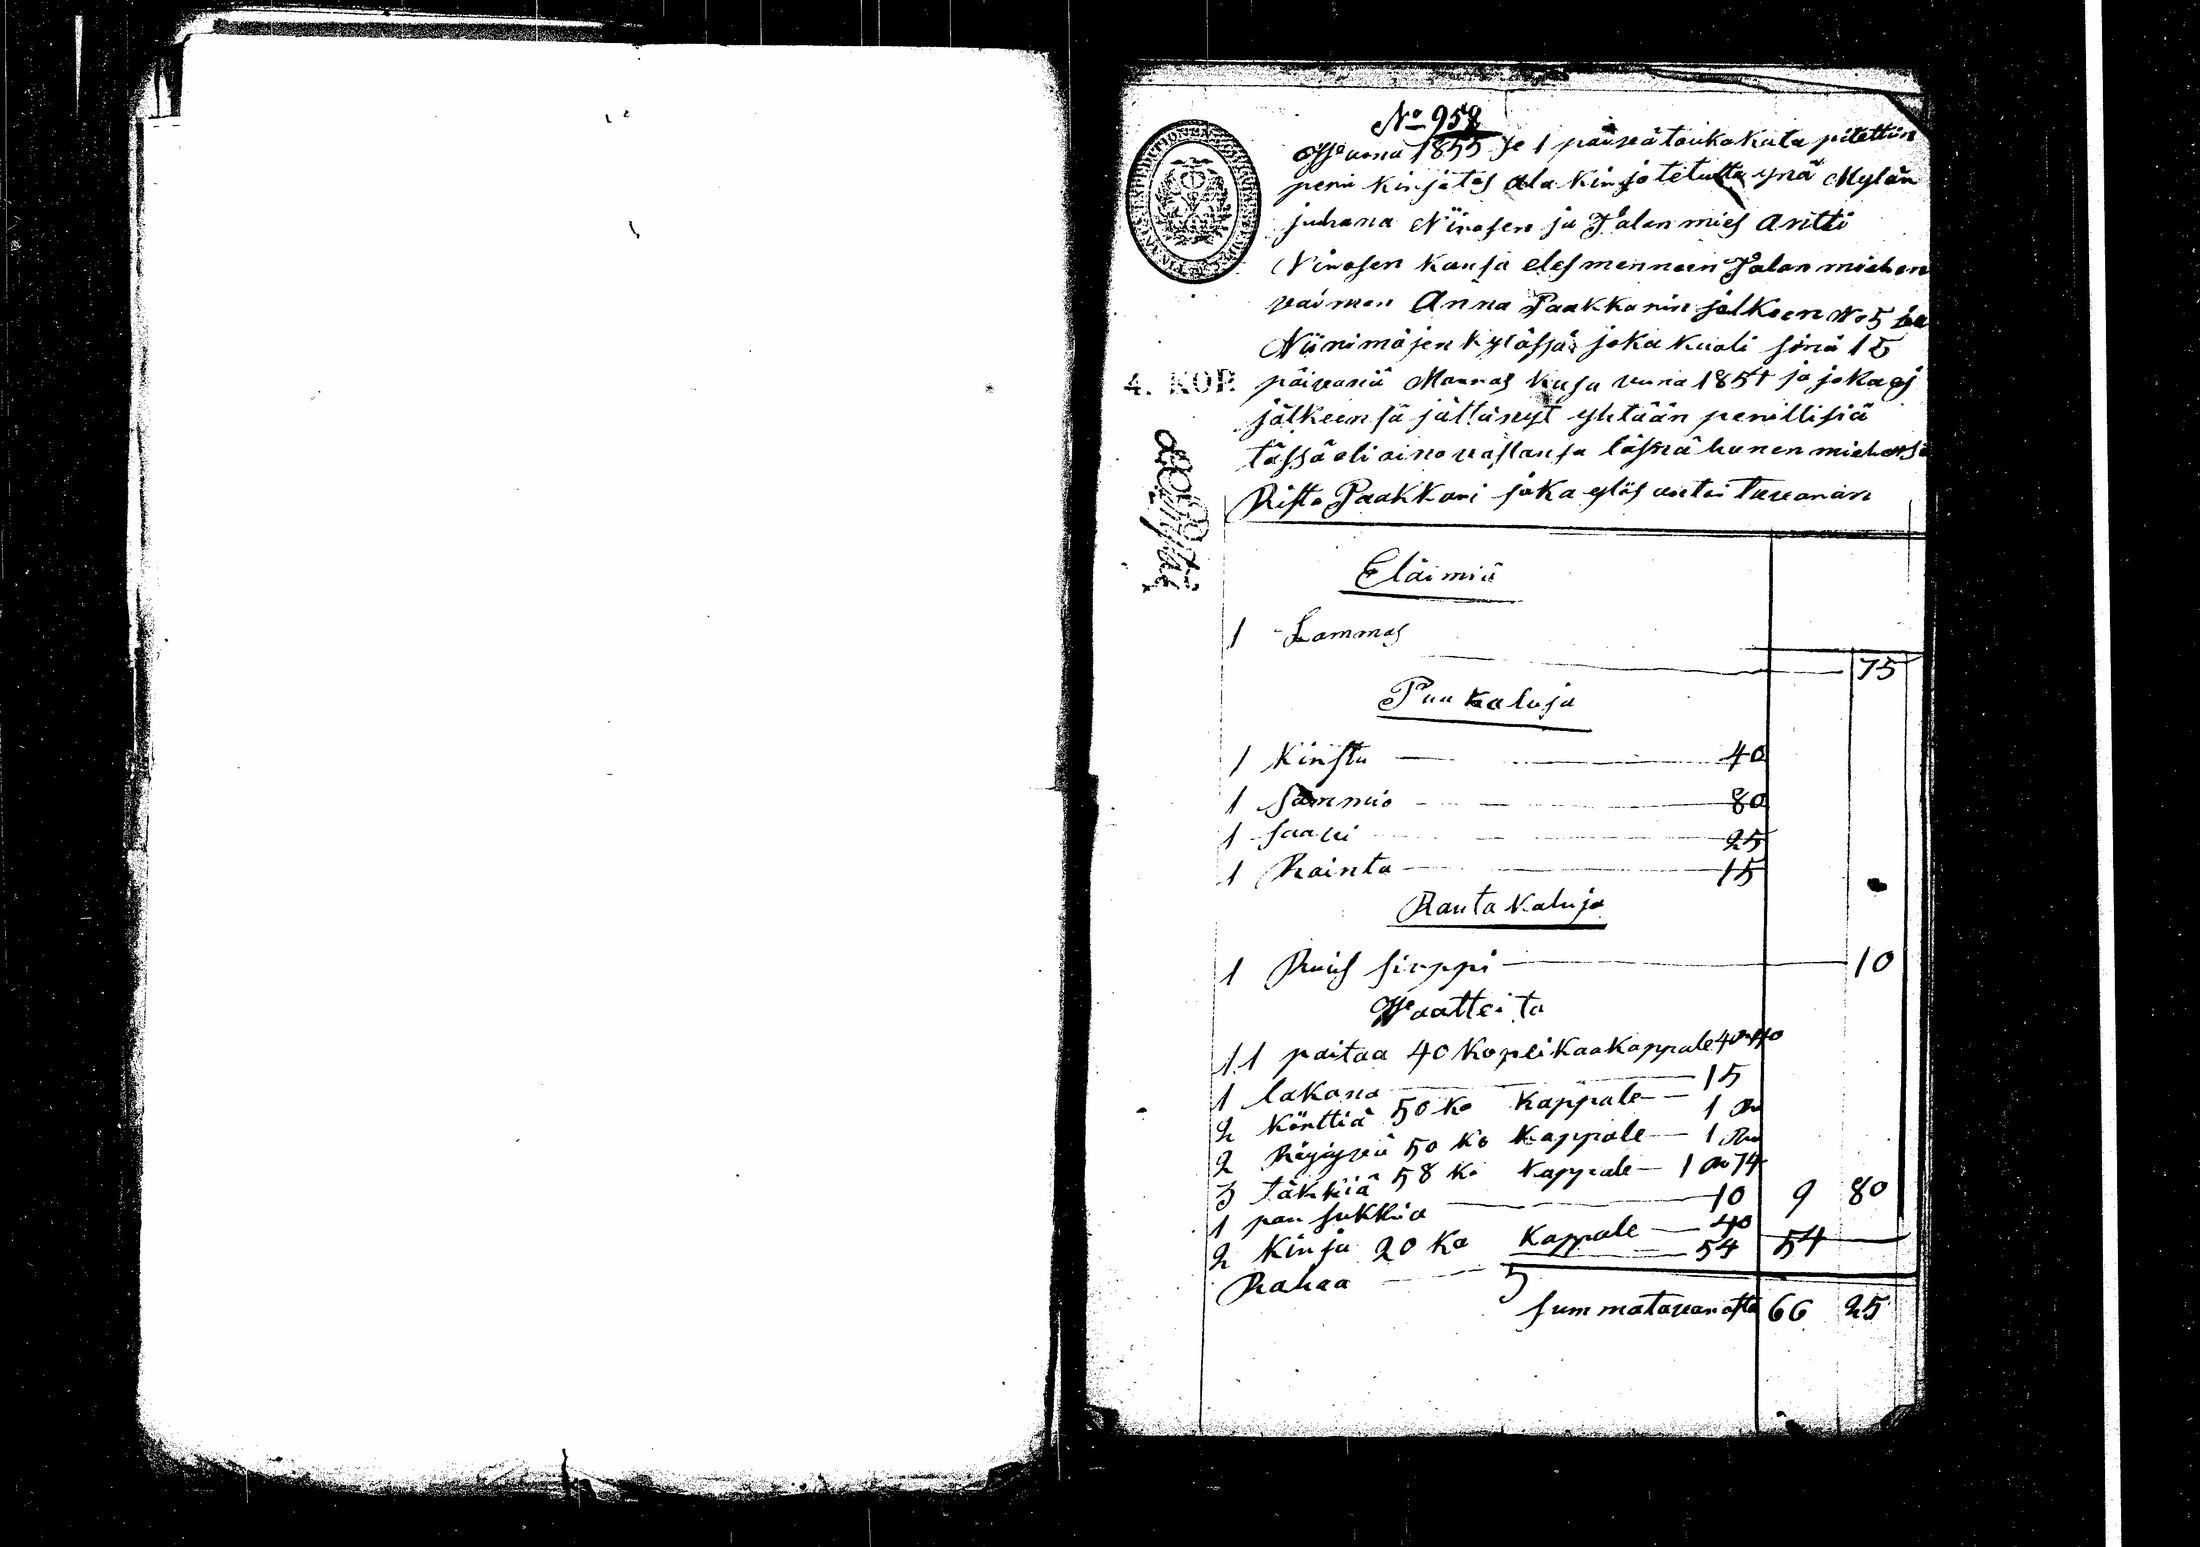 No 958
Wuona 1855 Je 1 päiveä toukokuta pitettiin
peri kirjotos ala kirjotetulta ynä Mylän
juhana Niirosen ja Talon mies Antti
Nirosen kansa eles mennen Talon miehen
vaimon Anna Paakkarin jälkeen No 5
Niinimäjen kylässä joka kuoli sinä 15
päivenä Marras kusa vuna 1854 ja joka ej
jälkeensä jättänyt yhtään perillisiä
tässä oli aino vastansa läsnä hänen miehensä
Risto Paakkari joka ylös antoi tavaran
4. KOP.
Eläimiä
1 Lammas 75
Puu kaluja
1 kirstu 40
1 sammio 80
1 saavi 25
1 Rainta 15
Rauta kaluja
1 Ruis sirppi 10
Waatteita
11 paitaa 40 kopeikaa kappale 4 Ru 40
1 lakana 15
2 körttiä 50 ko kappale 1 Ru
2 Röyyyä 50 ko kappale 1 Ru
3 täkkiä 58 ko kappale 1 Ru 74
1 pari sukkia 10 9 80
2 kirja 20 ko kappale 40
Rahaa 54 54
summa tavarasta 66 25